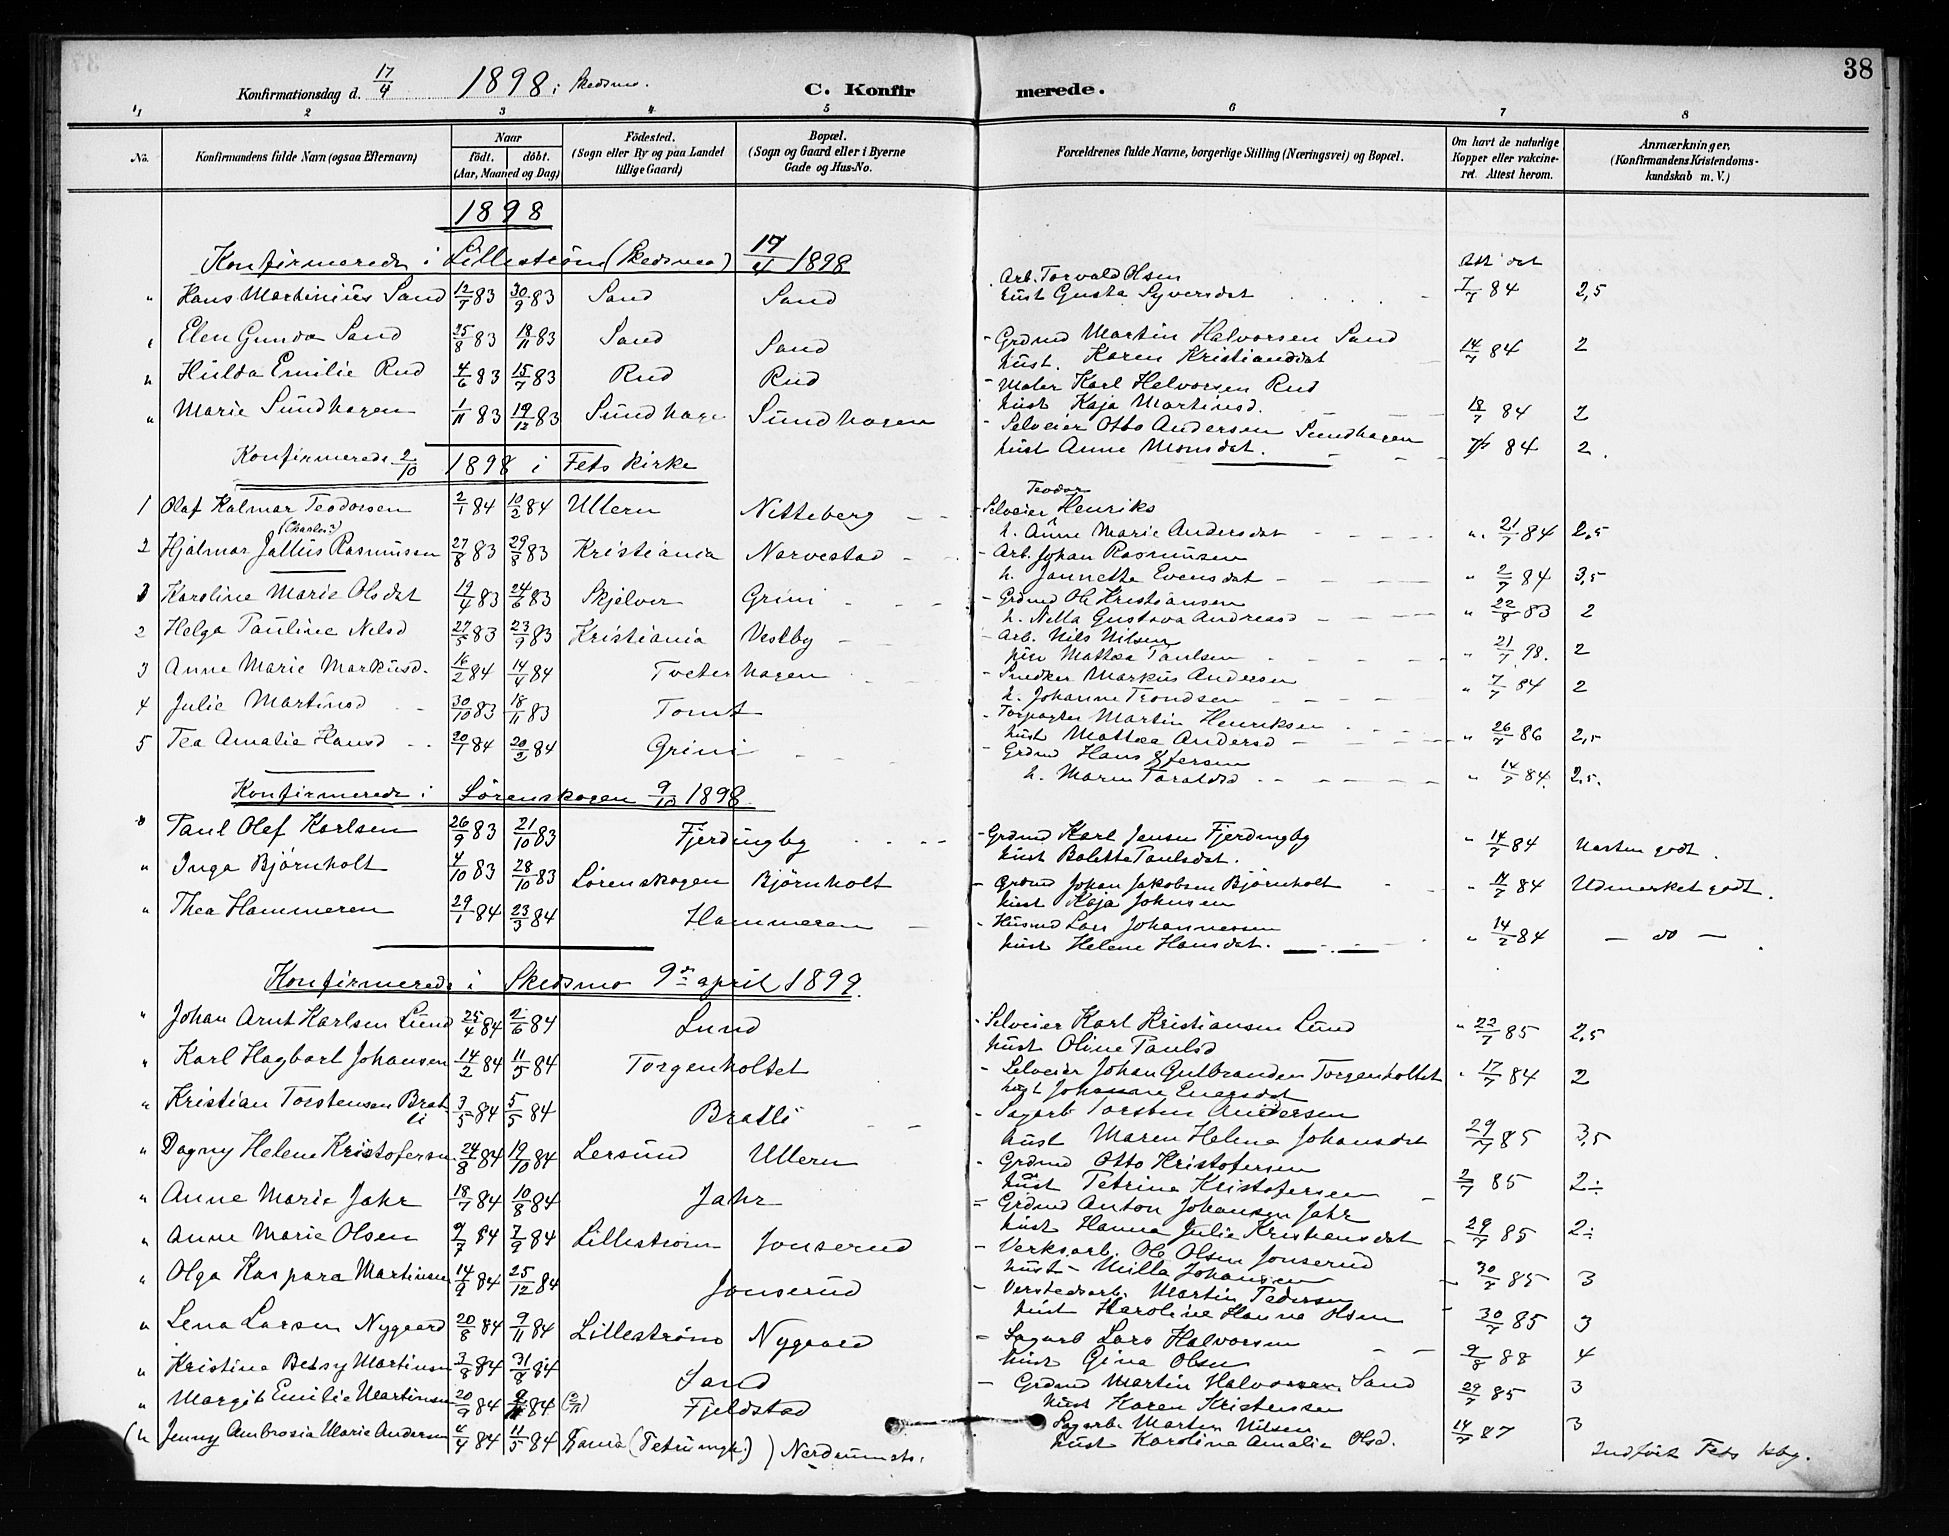 38
Konfirmationsdag d. 17/4 1898 i Skedsmo. C. Konfirmerede.
1 2 3 4 5 6 7 8
No. Konfirmandens fulde Navn (ogsaa Efternavn) Naar født. døbt. (Aar, Maaned og Dag) Fødested. (Sogn eller By og paa Landet tillige Gaard) Bopæl. (Sogn og Gaard eller i Byerne Gade og Hus-No. Forældrenes fulde Navne, borgerlige Stilling (Næringsvei) og Bopæl. Om havt de naturlige Kopper eller vakcineret. Attest herom. Anmærkninger. (Konfirmandens Kristendomskundskab m. V.)
1898
Konfirmerede i Lillestrøm (Skedsmo) 17/4 1898
" Hans Martinius Sand 12/7 83 30/9 83 Sand Sand Arb. Torvald Olsen
hust Gusta Syversdat 7/7 84 2,5
" Elen Gunda Sand 25/8 83 18/11 83 Sand Sand - Grdmd Martin Halvorsen Sand
hust. Karen Kristiansdat 14/7 84 2
" Hulda Emilie Rud 4/6 83 15/7 83 Rud Rud - Maler Karl Halvorsen Rud
hust Kaja Martinsd. 18/7 84 2
" Marie Sundhagen 1/11 83 19/12 83 Sundhagen Sundhagen - Selveier Otto Andersen Sundhagen
hust Anne Monsdat. 84 2.
Konfirmerede 2/10 1898 i Fets kirke
1 Olaf Kalmar Teodorsen 2/1 84 10/2 84 Ullern Nitteberg - Selveier Teodor Henriks
h. Anne Marie Andersdat " 21/7 84 2,5
2 Hjalmar Julius (Charles?) Rasmussen 27/8 83 29/8 83 Kristiania Narvestad - Arb. Johan Rasmussen
h. Jannetta Evensdat " 2/7 84 3,5
1 Karoline Marie Olsdat 19/4 83 24/6 83 Skjelver Grini - Grdmd Ole Kristiansen
h. Nella Gustava Andreasd " 22/8 83 2
2 Helga Pauline Nilsd 27/5 83 23/9 83 Kristiania Vestby - Arb. Nils Nilsen
hust Mathea Paulsen " 21/7 98. 2
3 Anne Marie Markusd. 16/2 84 14/4 84 Tveterhagen - Snedker Markus Andersen
h. Johanne Trondsen " 7/7 84 2
4 Julie Martinsd 30/10 83 18/11 83 Tomt - Forpagter Martin Henriksen
hust Mathea Andersd " 26/7 86 2,5
5 Tea Amalie Hansd 20/1 84 20/2 84 Grini - Grdmd Hans
h. Maren Taraldsd " 14/7 84. 2,5.
Konfirmerede i Lørenskogen 9/10 1898.
" Paul Olaf Karlsen 26/9 83 21/10 83 Fjerdingby - Grdmd Karl Jensen Fjerdingby
hust Bolette Paulsdat. " 14/7 84 Næsten godt.
" Inga Bjørnholt 4/10 83 28/10 83 Lørenskogen Bjørnholt - Grdmd Johan Jakobsen Bjørnholt
hust Kaja Johnsen " 84 Udmerket godt.
" Thea Hammeren 29/1 84 23/3 84 Hammeren - Husmd Lars Johannessen
hust Helene Hansdat. " 14/2 84 - do -
Konfirmerede i Skedsmo 9de april 1899.
" Johan Arnt Karlsen Lund 25/4 84 2/6 84 Lund - Selveier Karl Kristiansen Lund
hust Oline Paulsd " 22/7 85 2,5
" Karl Hagbart Johansen 14/2 84 11/5 84 Torgenholtet - Selveier Johan Gulbrandsen Torgenholtet
hust Johanne Enersdat " 17/7 84 2
" Kristian Torstensen Bratli 3/5 84 5/5 84 Bratli - Sagarb Torsten Andersen
hust Maren Helene Johansdat 29/7 85 3,5
" Dagny Helene Kristofersen 24/8 84 19/10 84 Lersund Ullern - Grdmd Otto Kristofersen
hust Petrine Kristofersen 2/7 85 2÷
" Anne Marie Jahr 18/7 84 10/8 84 Jahr - Grdmd Anton Johansen Jahr
hust Hanna Julie Kristiansdat 29/7 85 2÷
" Anne Marie Olsen 9/7 84 7/9 84 Lillestrøm Jonserud - Verksarb. Ole Olsen Jonserud
hust - Milla Johansen 30/7 85 3
" Olga Kaspara Martinsen 14/9 84 25/12 84 Jonserud - Verstedsarb. Martin Pedersen
hust Karoline Hanna Olsen 30/7 85 3
" Lena Larsen Nygaard 20/8 84 9/11 84 Lillestrøm Nygaard - Sagarb Lars Halvorsen
hust Gina Olsen 9/8 88 4
" Kristine Betsy Martinsen 3/8 84 31/8 84 Sand - Grdmd Martin Halvorsen Sand
hust Karen Kristensen 29/7 85 3
" Margit Emilie Martinsen 20/9 84 84 (2/11) Fjeldstad Sagarb. Martin Nilsen
hust Karoline Amalie Olsd. 14/7 87 3
(" Jenny Ambrosia Marie Andersen 4/4 84 11/5 84 ) Indført Fets kbg.